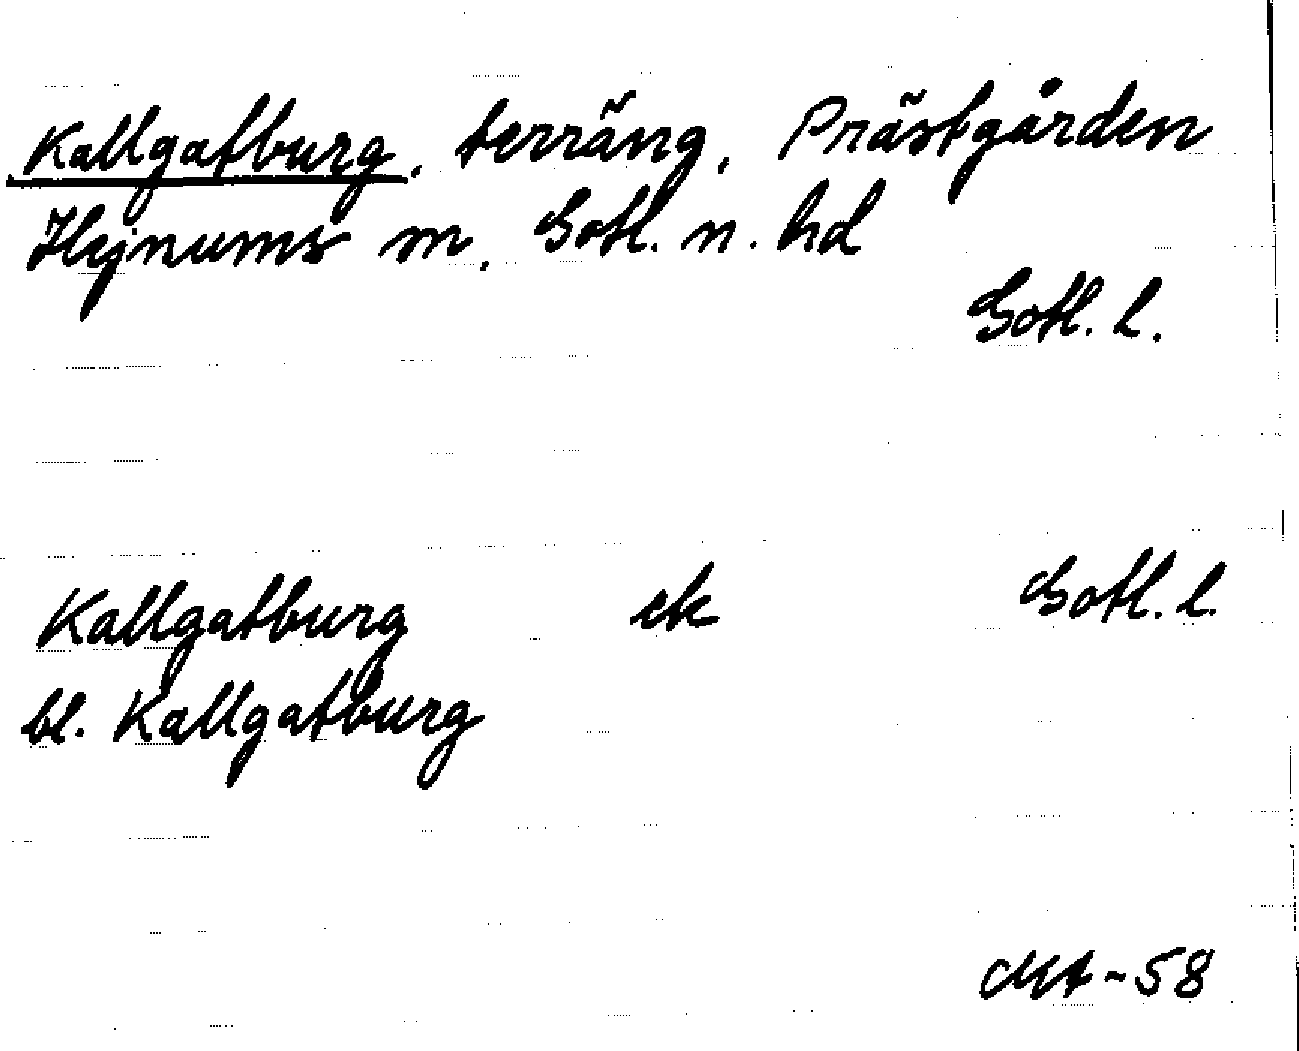 Kallgatburg, terräng, Prästgården
Hejnums sn, Gotl. n. hd
Gotl. l.
Kallgatburg ek Gotl. l.
bl. Kallgatburg
-58